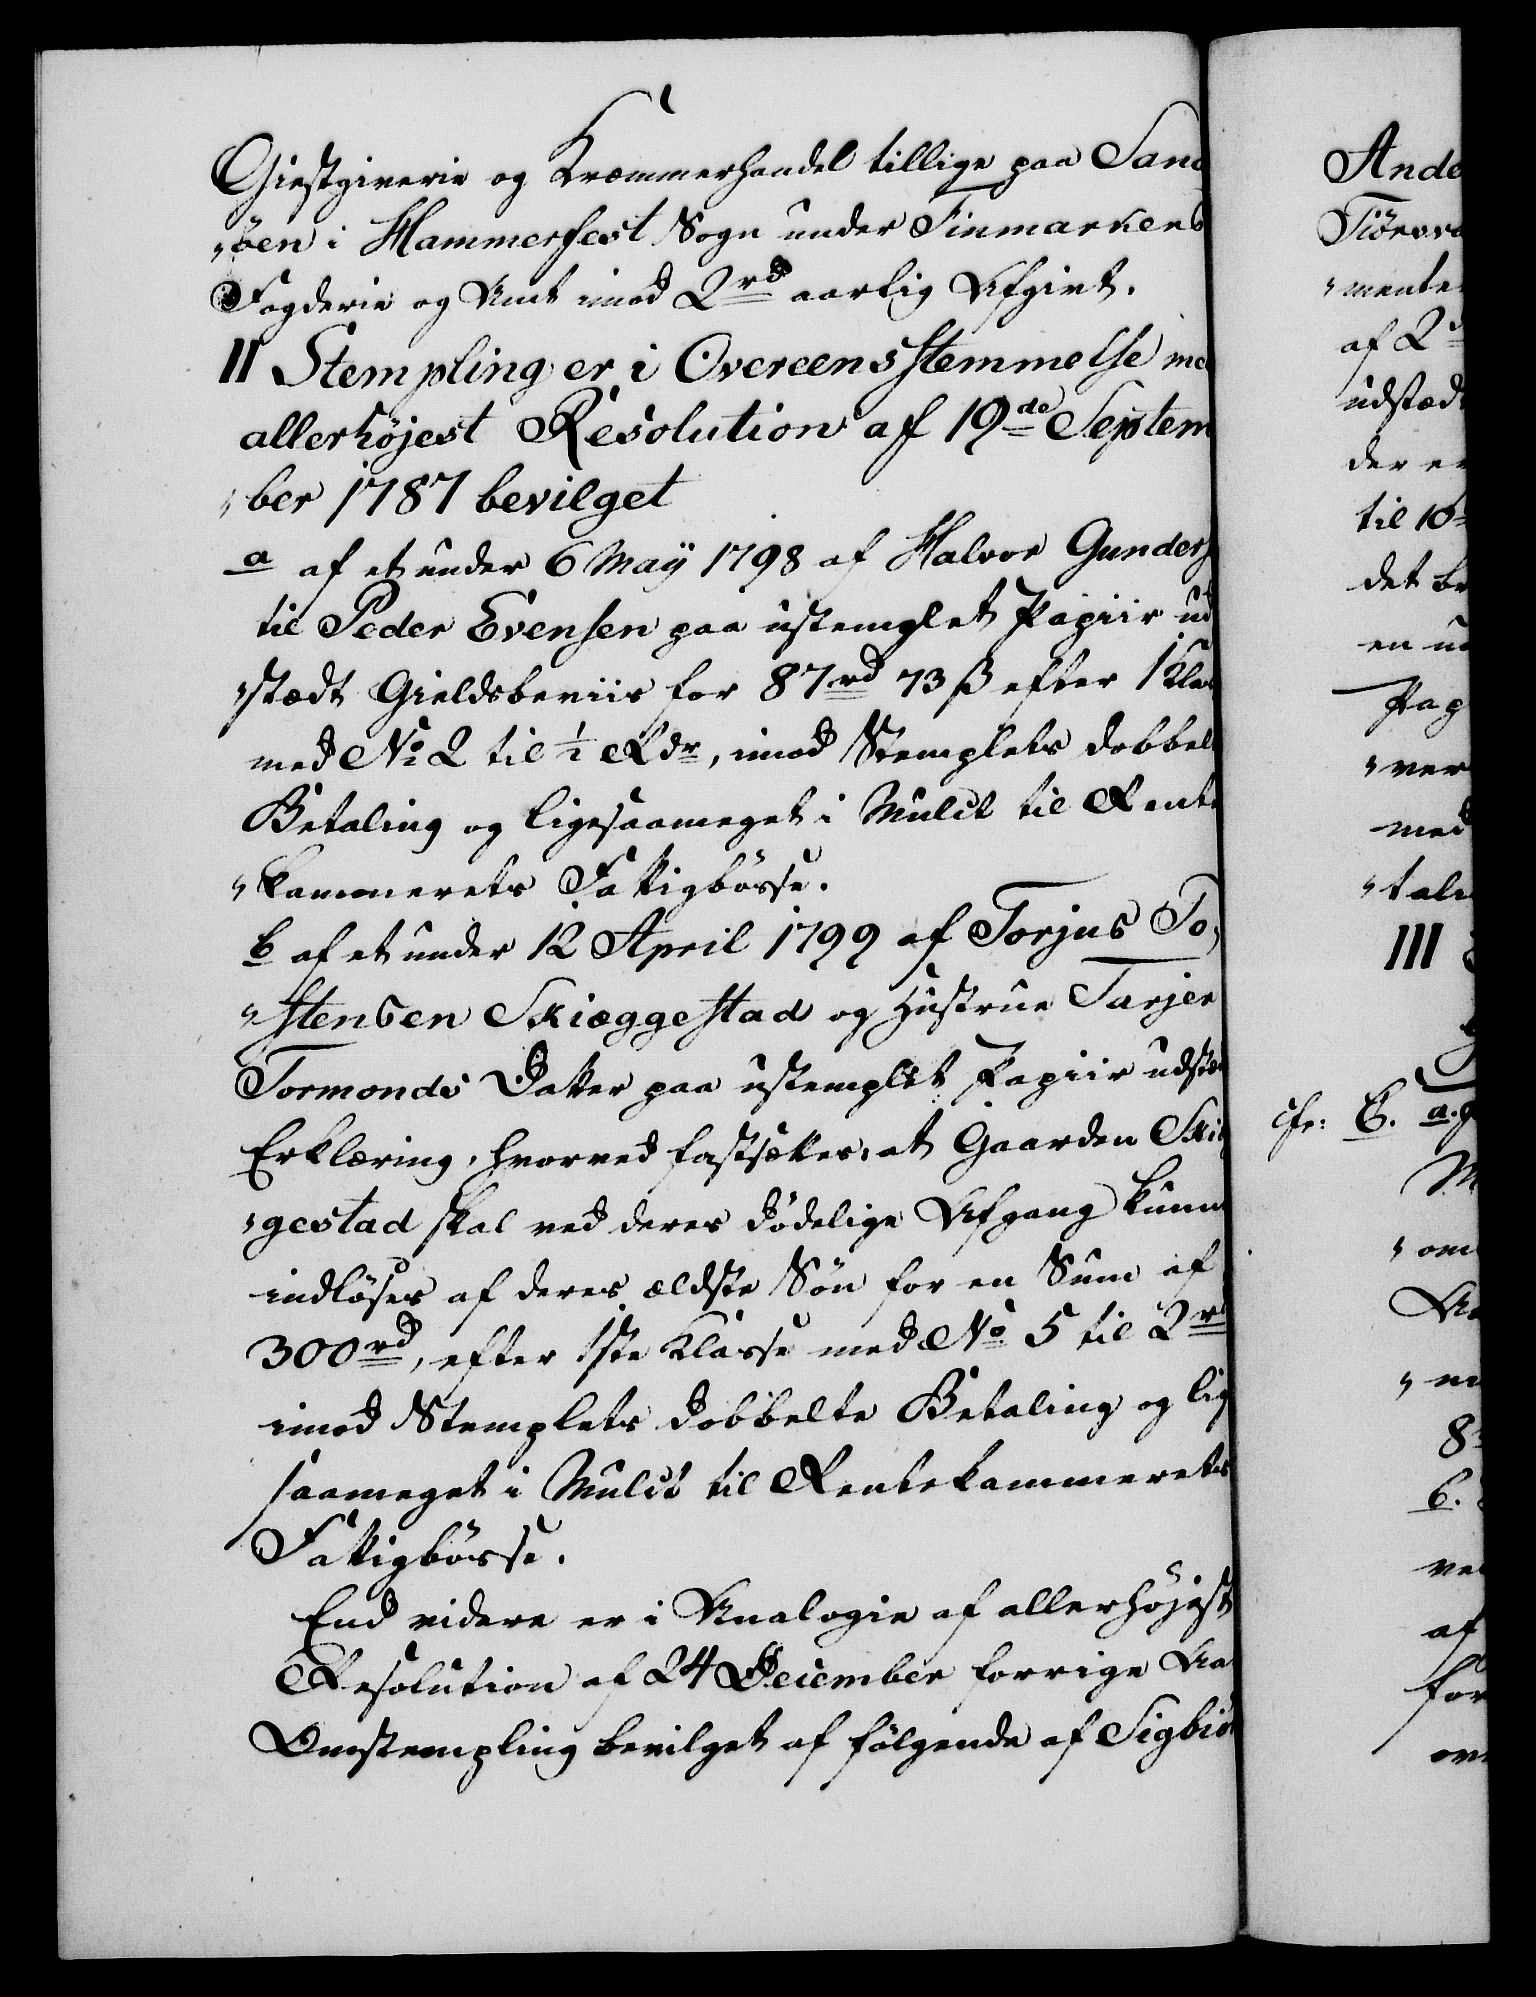 Giestgiverie og Kræmmerhandel tillige paa Sand
„öen i Hammerfest Sogn under Finmarkens
Fogderie og Amt imod 2 rd aarlig Afgivt.
II Stempling er i Overeensstemmelse med
allerhöjest Resolution af 19de Septem
„ber 1787 bevilget
a af et under 6 Maÿ 1798 af Halvor Gunders
til Peder Evensen paa ustemplet Papiir ud
„stædt Gieldsbeviis for 87 rd 73 ß efter 1 Klas
med No 2 til ½ Rdr, imod Stemplets dobbelt
Betaling og ligesaameget i Mulct til Rente
„kammerets Fattigbösse.
b af et under 12 April 1799 af Torjus To„
„stensen Skiæggestad og Hustrue Tarjer
Tormonds Datter paa ustemplet Papiir udstæ
Erklæring, hvorved fastsættes, at Gaarden Ski
„gestad skal ved deres dödelige Afgang kunn
indlöses af deres ældste Sön for en Sum af
300 rd, efter 1ste Klasse med No 5 til 2 rd
imod Stemplets dobbelte Betaling og lig
saameget i Mulct til Rentekammerets
Fattigbösse.
End videre er i Analogie af allerhöjest
Resolution af 24 December forrige Aa
Omstempling bevilget af fölgende af Sigbiö
Ande
Tiörsva
„mente
af 2
udstædt
der er
til 10
det be
en u
Pap
„ver
med
„tali
III
cfr: C. a.
M
„om
„m
8
b.
ve
af
for
ov